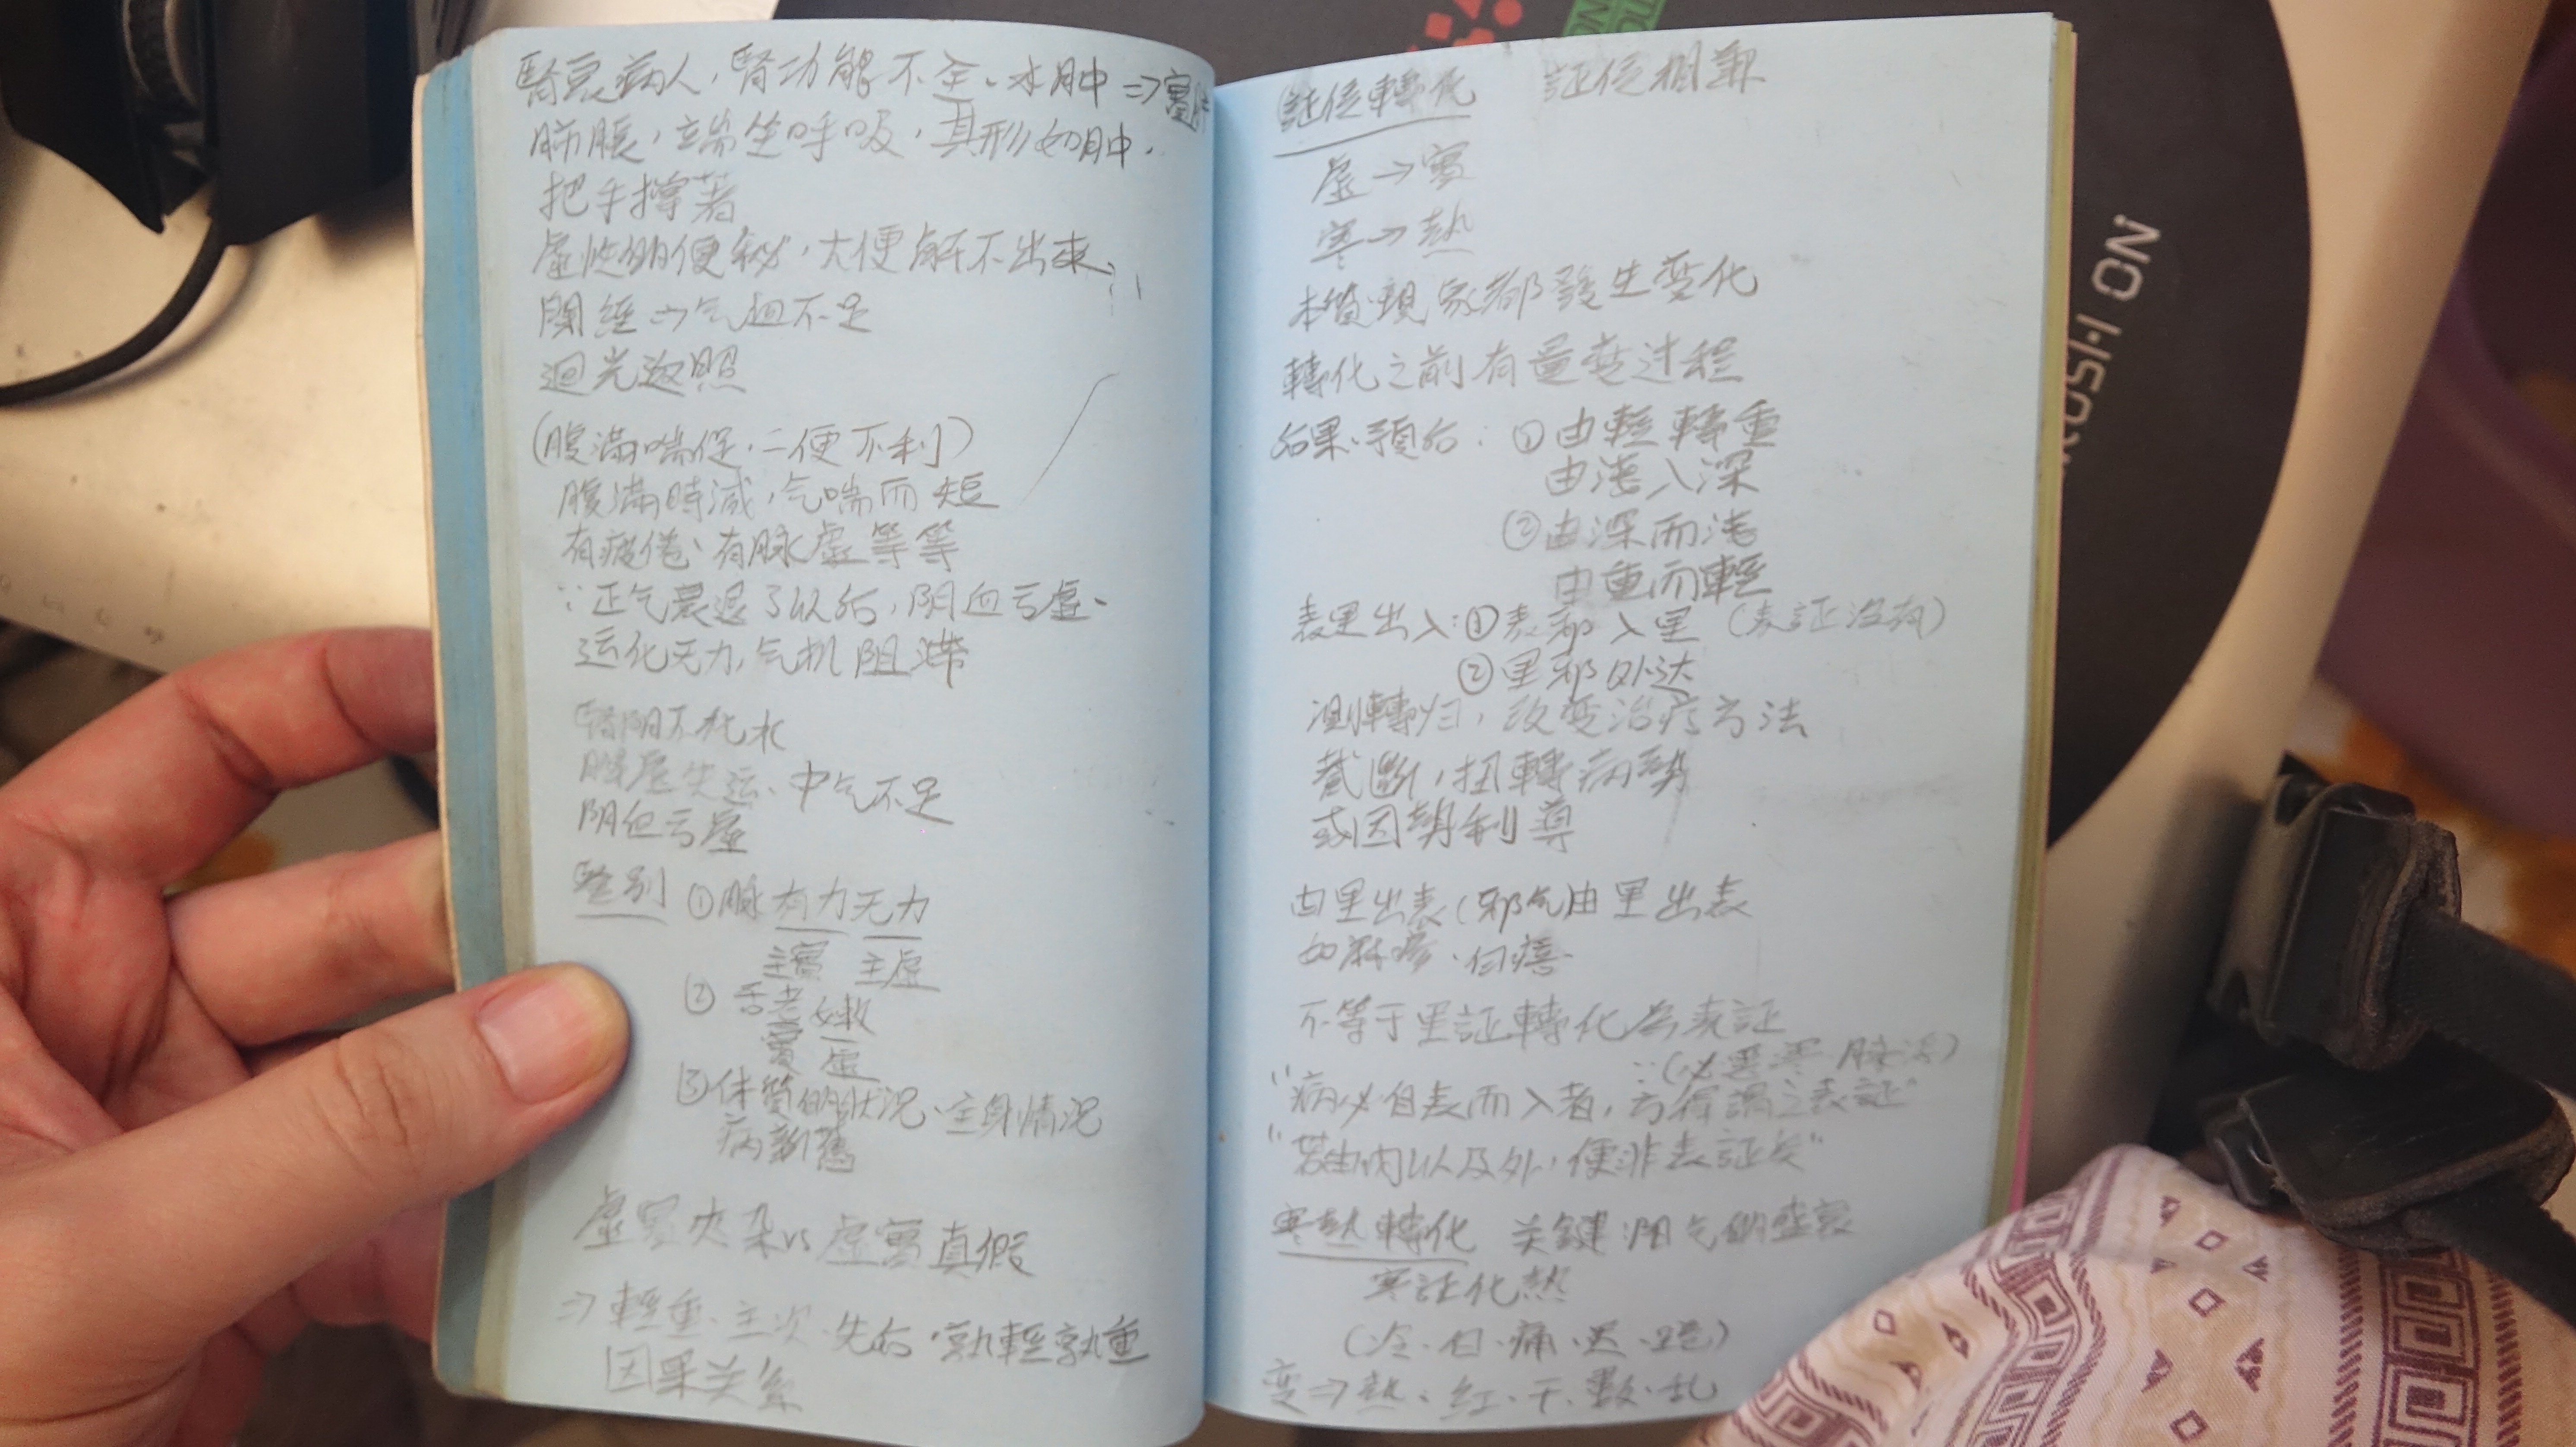 腎衰病人,腎功能不全、水肿⇒實
肺脹,端坐呼吸,其形如肿.
把手撐著
虛性的便秘,大便解不出來
閉經⇒气血不足
迴光返照
(腹滿喘促,二便不利)
腹滿時減,气喘而短
有疲倦、有脉虛等等
∵正气衰退了以后,阴血亏虛、
运化无力,气机阻滞
腎阴不化水
脾虛失运、中气不足
阴血亏虛
鉴别 ①脉有力无力
主實 主虛
② 舌老嫩
實 虛
③体質的狀況、全身情况
病新舊
虛實夹杂vs虛實真假
⇒輕重、主次、先后、孰輕孰重
因果关系
証候轉化 証候相兼
虛→實
寒→熱
本質現象都發生变化
轉化之前有量变过程
后果、預后:①由輕轉重
由浅入深
②由深而浅
由重而輕
表里出入:①表邪入里(表証没有)
②里邪外达
測轉归,改变治疗方法
截斷,扭轉病勢
或因勢利導
由里出表(邪气由里出表
如麻疹、白㾦
不等于里証轉化為表証
∵(必惡寒、脉浮)
"病必自表而入者,方得謂之表証"
"若由内以及外,便非表証矣"
寒熱轉化 关鍵:阳气的盛衰
寒証化熱
(冷、白、痛、迟、
变⇒熱、紅、干、數、乱
ON